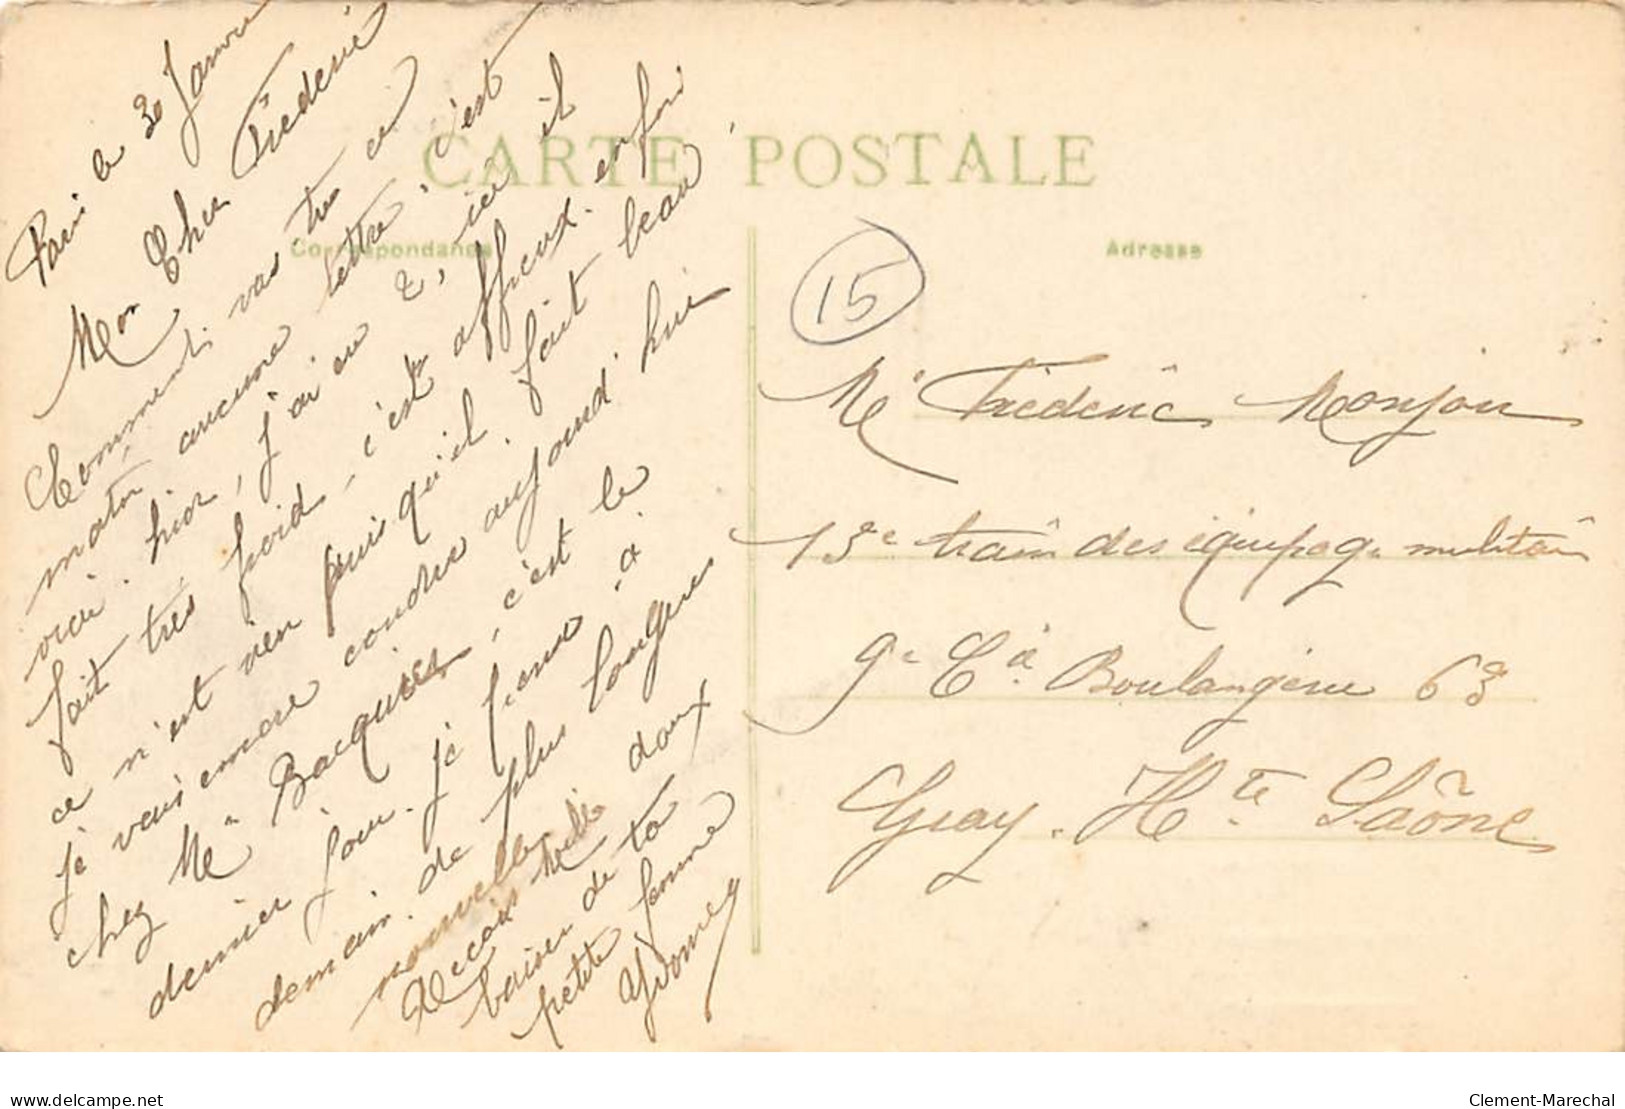 CARTE POSTALE
Correspondance
Adresse
15
Paris le 30 Janvier
Mon Cher Fréderic
Comment vas tres ce
matin aucune lettre c'est
vrai. hier, j'ai eu 2, ici il
fait très froid, c'est affreux. enfin
ce n'est rien puis qu'il fait beau
je vais encore coudre aujourd'hui
chez Me Bacquies, c'est le
dernier jour. je pense à
demain. de plus longues
nouvelles
Recois mille doux
baiser de ta
petite femme
Yvonne
Mr Fréderic Monjou
13e train des équipage militair
9e Cie Boulangerie 63
Gray. Hte Saône
Clement-Marechal